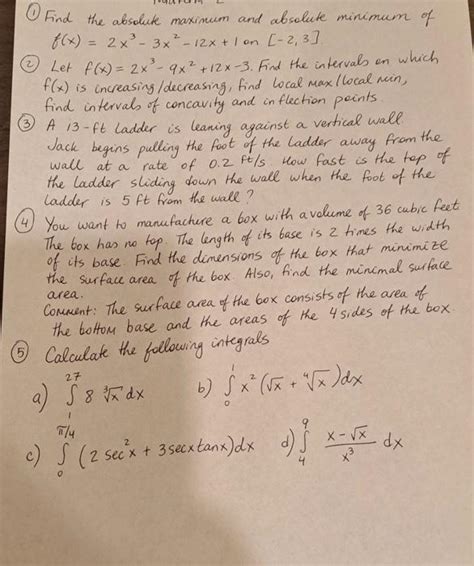 ① Find the absolute maximum and absolute minimum of
f(x) = 2x³ - 3x² - 12x + 1 on [-2, 3]
② Let f(x) = 2x³ - 9x² + 12x - 3. Find the intervals on which
f(x) is increasing/decreasing, find local max/local min,
find intervals of concavity and inflection points.
③ A 13-ft ladder is leaning against a vertical wall
Jack begins pulling the foot of the ladder away from the
wall at a rate of 0.2 ft/s. How fast is the top of
the ladder sliding down the wall when the foot of the
ladder is 5 ft from the wall?
④ You want to manufacture a box with a volume of 36 cubic feet
The box has no top. The length of its base is 2 times the width
of its base. Find the dimensions of the box that minimize
the surface area of the box. Also, find the minimal surface
area.
Comment: The surface area of the box consists of the area of
the bottom base and the areas of the 4 sides of the box.
⑤ Calculate the following integrals
a) ∫₁²⁷ 8 ∛x dx b) ∫₀¹ x² (√x + ∜x) dx
c) ∫₀^(π/4) (2 sec²x + 3 secx tanx) dx d) ∫₄⁹ (x - √x)/x³ dx